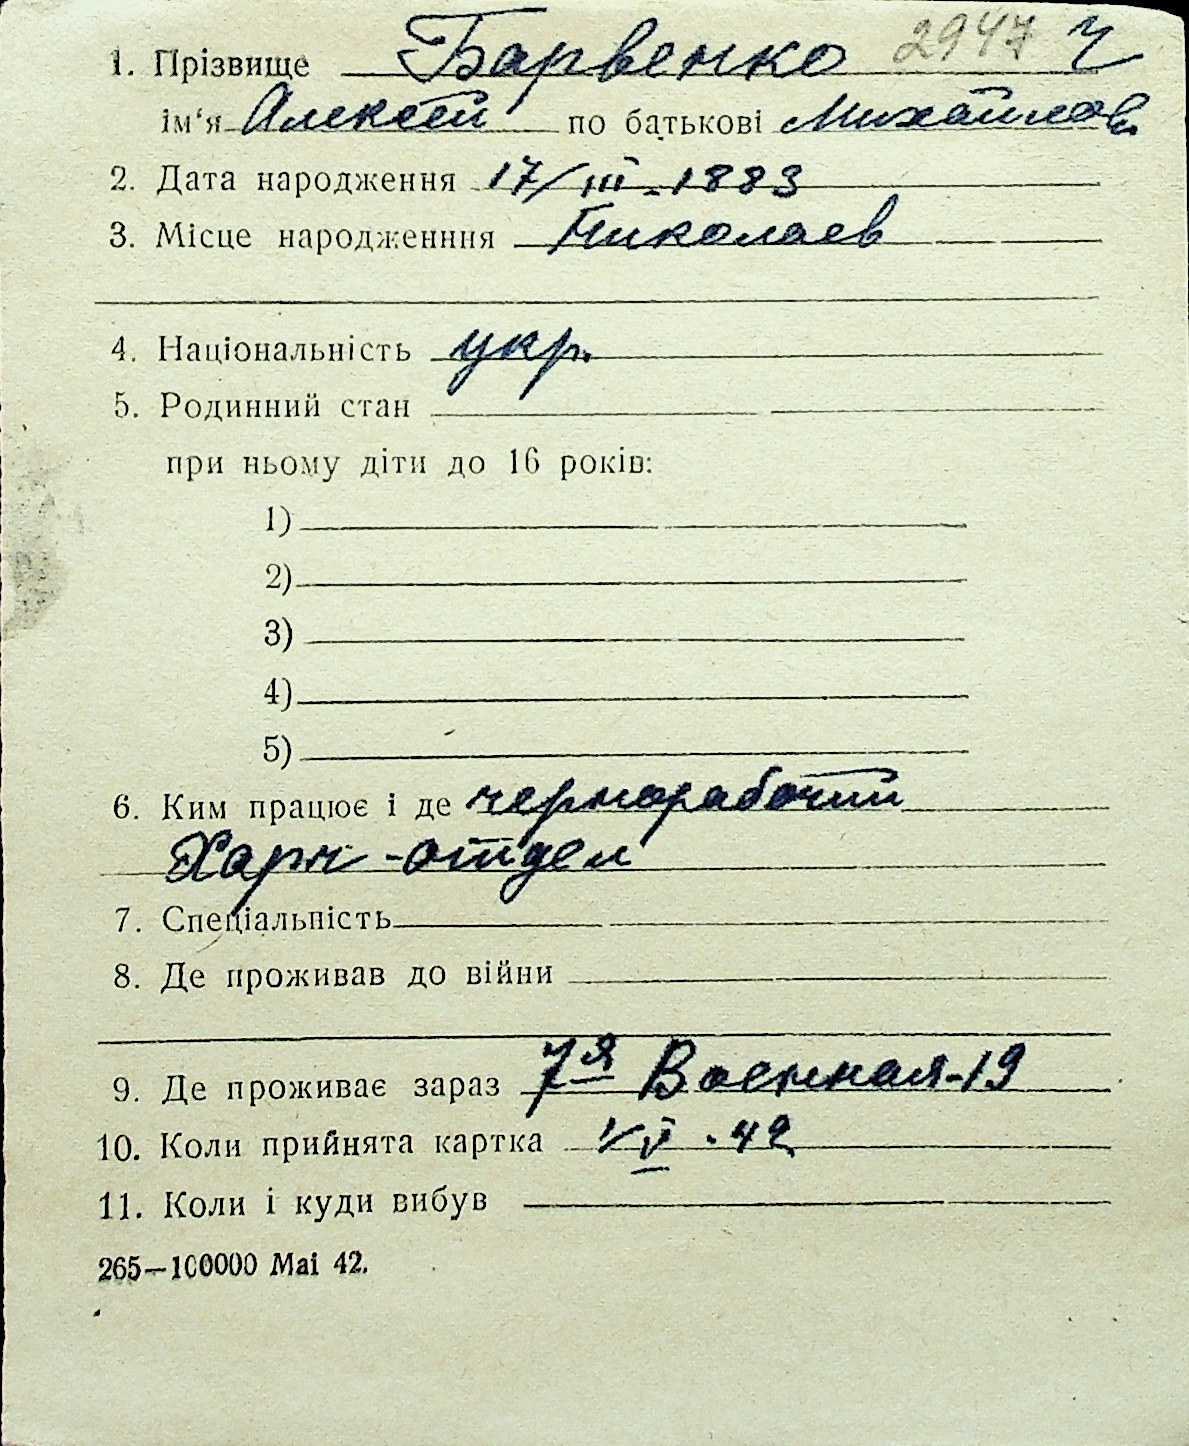 1. Прізвище Барвенко 2947 Ч
ім‘я Алексей по батькові Михайлов.
2. Дата народження 17/III-1883
3. Місце народженння Николаев
4. Національність укр.
5. Родинний стан
при ньому діти до 16 років:
1)
2)
3)
4)
5)
6. Ким працює і де чернорабочий
Харч-отдел
7. Спеціальність
8. Де проживав до війни
9. Де проживає зараз 7я Военная-19
10. Коли прийнята картка 1/V.42
11. Коли і куди вибув
265—100000 Mai 42.